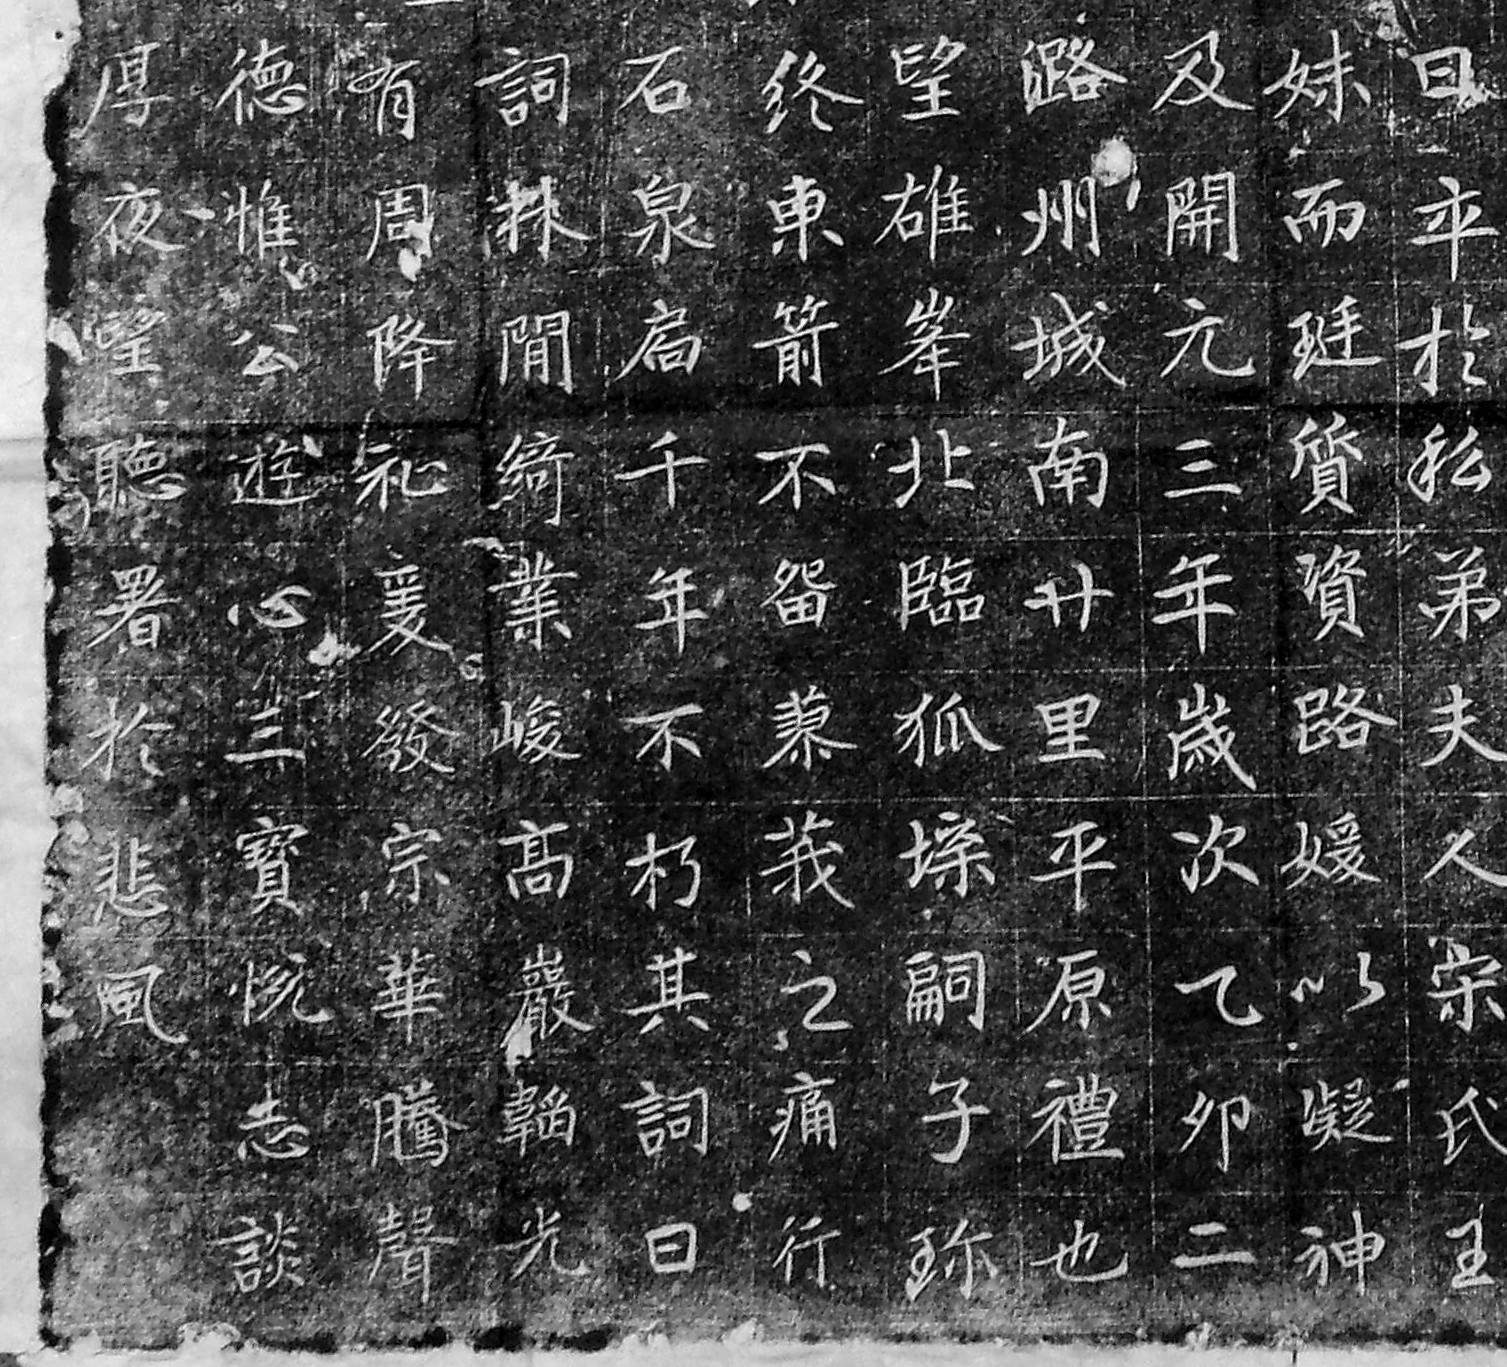 日卒於私弟夫人宋氏王
妹而珽質資路媛以凝神
及開元三年歲次乙卯二
潞州城南廿里平原禮也
望雄峯北臨狐堔嗣子珎
終東箭不留蓼莪之痛行
石泉扃千年不朽其詞曰
詞林閒綺業峻高巖韜光
有周降祉爰發宗華騰聲
德惟公遊心三寶悦志談
厚夜望聽署於悲風